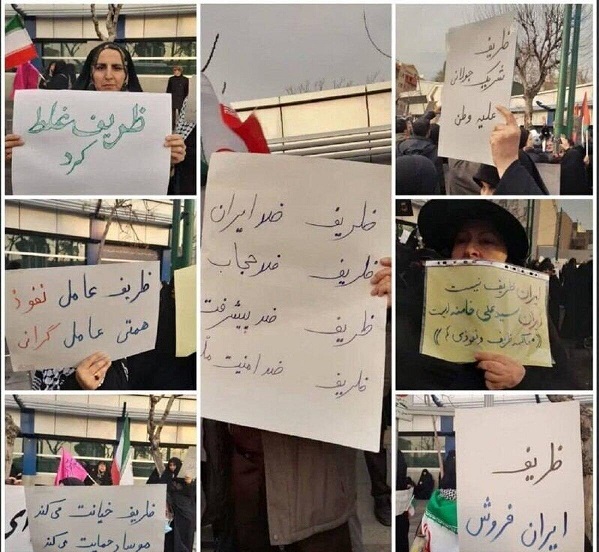 ظریف غلط
کرد
ظریف
شریک جولانی
علیه وطن
ظریف ضد ایران
ظریف ضد حجاب
ظریف ضد پیشرفت
ظریف ضد امنیت
ظریف عامل نفوذ
همتی عامل گرانی
ایران ظریف نیست
ایران سیدعلی خامنه‌ایست
ظریف خیانت می‌کند
موساد حمایت می‌کند
ظریف
ایران فروش